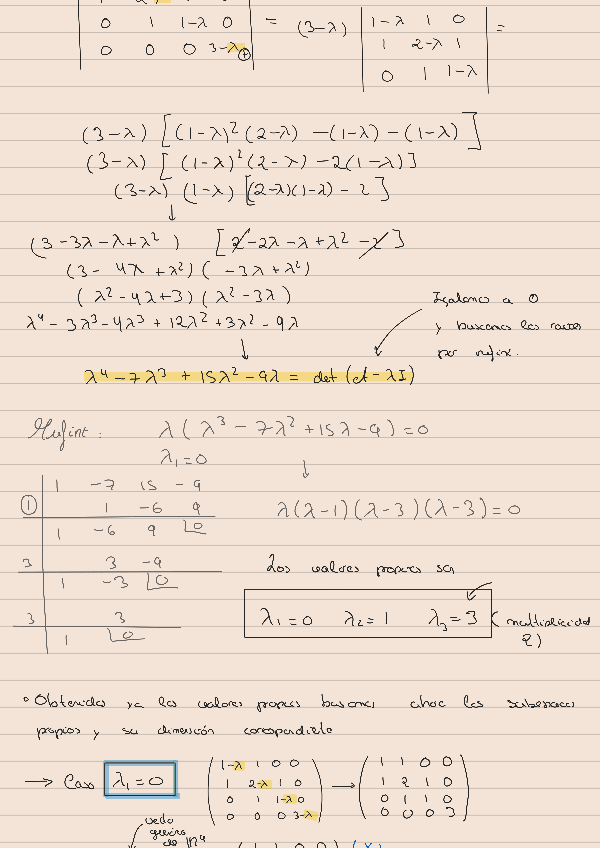 0 1 1-λ 0 = (3-λ) | 1-λ 1 0 | =
0 0 0 3-λ | 1 2-λ 1 |
| 0 1 1-λ |
(3-λ) [(1-λ)²(2-λ) -(1-λ) - (1-λ)]
(3-λ) [(1-λ)²(2-λ) - 2(1-λ)]
(3-λ) (1-λ) [(2-λ)(1-λ) - 2]
↓
(3-3λ-λ+λ²) [2-2λ-λ+λ²-2]
(3-4λ+λ²)(-3λ+λ²)
(λ²-4λ+3)(λ²-3λ)
λ⁴-3λ³-4λ³+12λ²+3λ²-9λ
Igualamos a 0
y buscamos las raíces
por rufini.
↓
λ⁴-7λ³+15λ²-9λ = det(A-λI)
Rufini: λ(λ³-7λ²+15λ-9)=0
λ₁=0
↓
1 -7 15 -9
① 1 -6 9
1 -6 9 0
3 3 -9
1 -3 0
3 3
1 0
λ(λ-1)(λ-3)(λ-3)=0
Los valores propios son
λ₁=0 λ₂=1 λ₃=3 (multiplicidad
2)
• Obtenidos ya los valores propios buscamos ahora los subespacios
propios y su dimensión correspondiente
→ Caso λ₁=0
1-λ 1 0 0 → 1 1 0 0
1 2-λ 1 0 1 2 1 0
0 1 1-λ 0 0 1 1 0
0 0 0 3-λ 0 0 0 3
de ℝ⁴